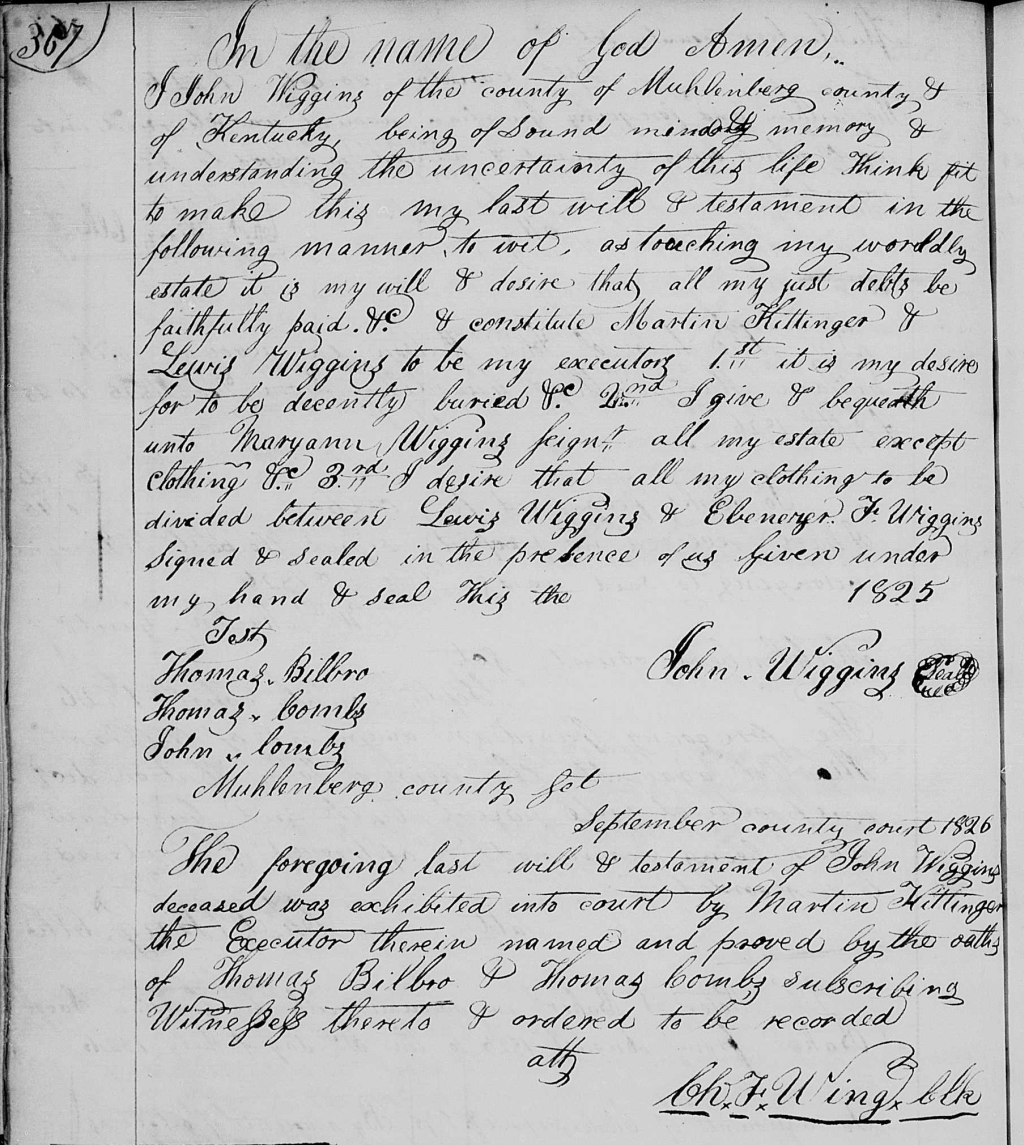 367
In the name of God Amen,
I John Wiggins of the county of Muhlenberg county &
of Kentucky, being of Sound mind & memory &
understanding the uncertainty of this life Think fit
to make this my last will & testament in the
following manner, to wit, as touching my worldly
estate it is my will & desire that all my just debts be
faithfully paid. &c & constitute Martin Kittinger &
Lewis Wiggins to be my executors 1.st it is my desire
for to be decently buried &c 2.nd I give & bequeath
unto Maryann Wiggins all my estate except
clothing &c 3.rd I desire that all my clothing to be
divided between Lewis Wiggins & Ebenezer. F. Wiggins
Signed & sealed in the presence of us Given under
my hand & seal This the 1825
Test
Thomas. Bilbro John. Wiggins Seal
Thomas. Combs
John. Combs
Muhlenberg county Sct
September county court 1826
The foregoing last will & testament of John Wiggins
deceased was exhibited into court by Martin Kittinger
the Executor therein named and proved by the oaths
of Thomas Bilbro & Thomas Combs subscribing
Witnesses thereto & ordered to be recorded
att
Ch. F. Wing. Clk